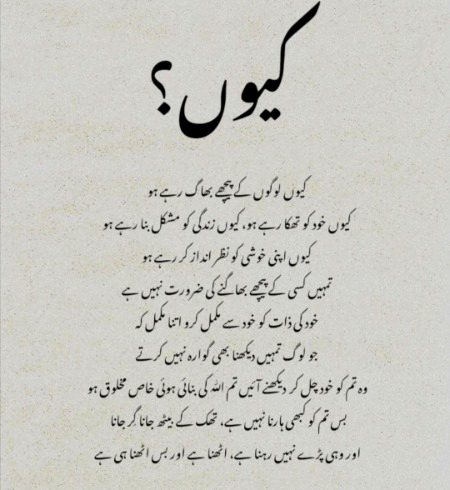 کیوں؟
کیوں لوگوں کے پیچھے بھاگ رہے ہو
کیوں خود کو تھکا رہے ہو، کیوں زندگی کو مشکل بنا رہے ہو
کیوں اپنی خوشی کو نظر انداز کر رہے ہو
تمہیں کسی کے پیچھے بھاگنے کی ضرورت نہیں ہے
خود کی ذات کو خود سے مکمل کرو اتنا مکمل کہ
جو لوگ تمہیں دیکھنا بھی گوارہ نہیں کرتے
وہ تم کو خود چل کر دیکھنے آئیں تم اللہ کی بنائی ہوئی خاص مخلوق ہو
بس تم کو کبھی ہارنا نہیں ہے، تھک کے بیٹھ جانا گِر جانا
اور وہی پڑے نہیں رہنا ہے، اٹھنا ہے اور بس اٹھنا ہی ہے